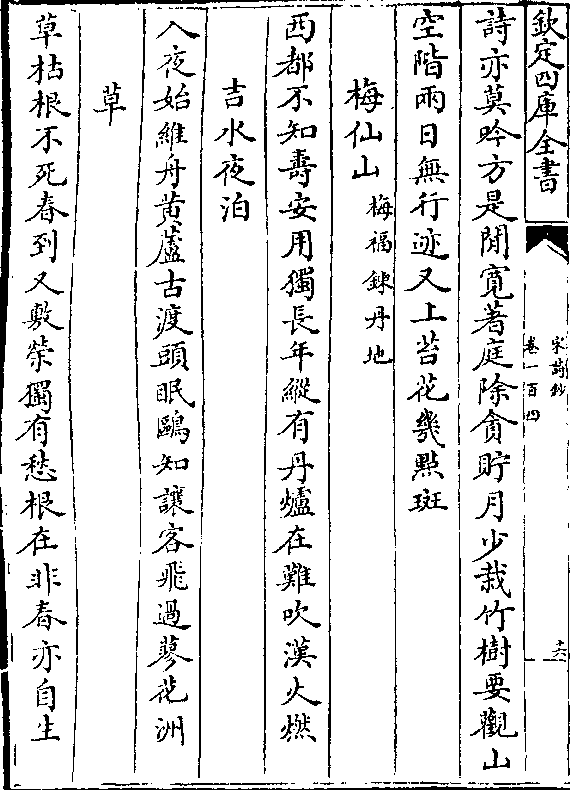 欽定四庫全書
宋詩鈔
卷一百四
十六
詩亦莫吟方是閒寛著庭除貪貯月少栽竹樹要觀山
空階雨日無行迹又上苔花幾點斑
梅仙山梅福鍊丹地
西都不知壽安用獨長年縱有丹爐在難吹漢火燃
吉水夜泊
入夜始維舟黄蘆古渡頭眠鷗知讓客飛過蓼花洲
草
草枯根不死春到又敷榮獨有愁根在非春亦自生